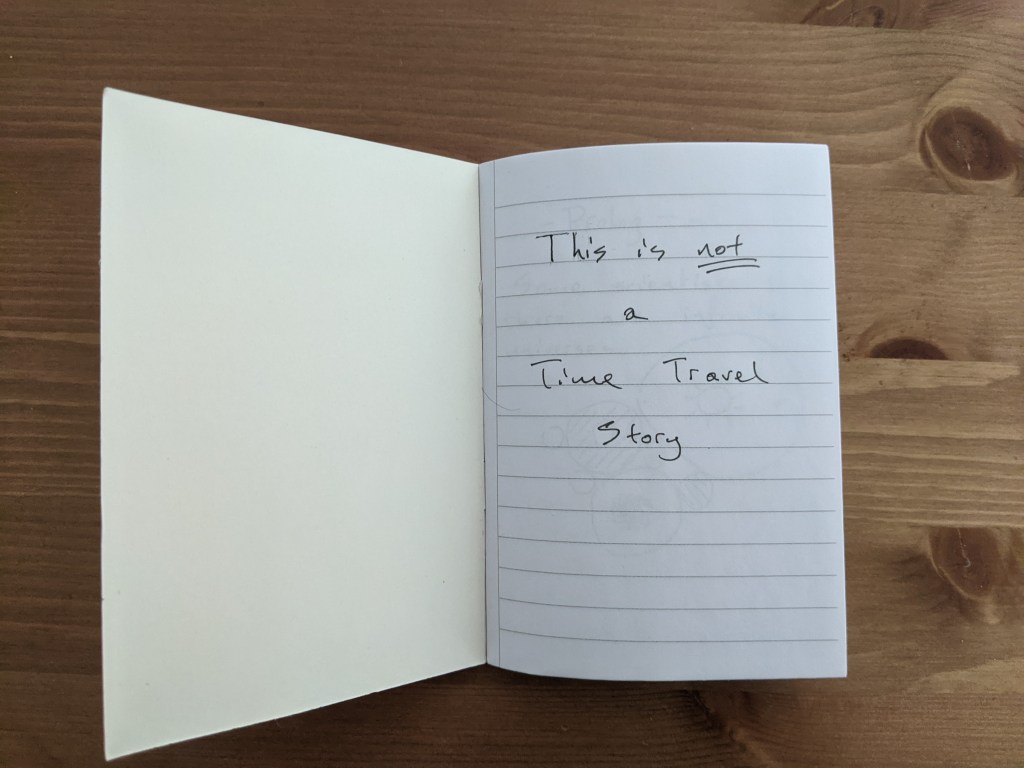 This is not
a
Time Travel
Story